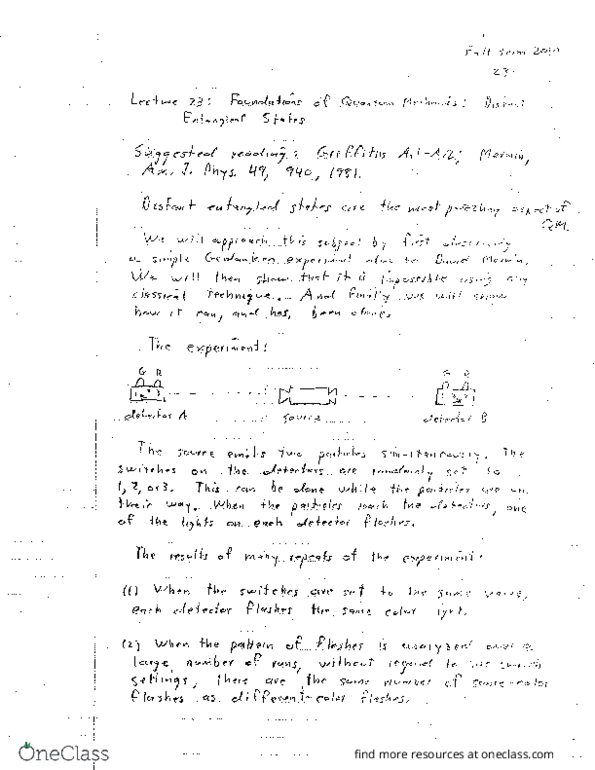 Fall term
23
Lecture 23: Foundations of Quantum Mechanics: Distant
Entangled States
Suggested reading: Griffiths A.1-A.2; Mermin,
Am. J. Phys. 49, 940, 1981.
Distant entangled states are the most puzzling aspect of
QM.
We will approach this subject by first
a simple Gedanken experiment due to David Mermin.
We will then show that it is impossible using any
classical technique. And finally we will show
how it can, and has, been done.
The experiment:
G R
G R
detector A
source
detector B
The source emits two particles simultaneously. The
switches on the detectors are randomly set to
1, 2, or 3. This can be done while the particles are on
their way. When the particles reach the detectors, one
of the lights on each detector flashes.
The results of many repeats of the experiment:
(1) When the switches are set to the same
each detector flashes the same color light.
(2) When the pattern of flashes is analyzed over a
large number of runs, without regard to the switch
settings, there are the same number of same-color
flashes as different-color flashes.
OneClass
find more resources at oneclass.com